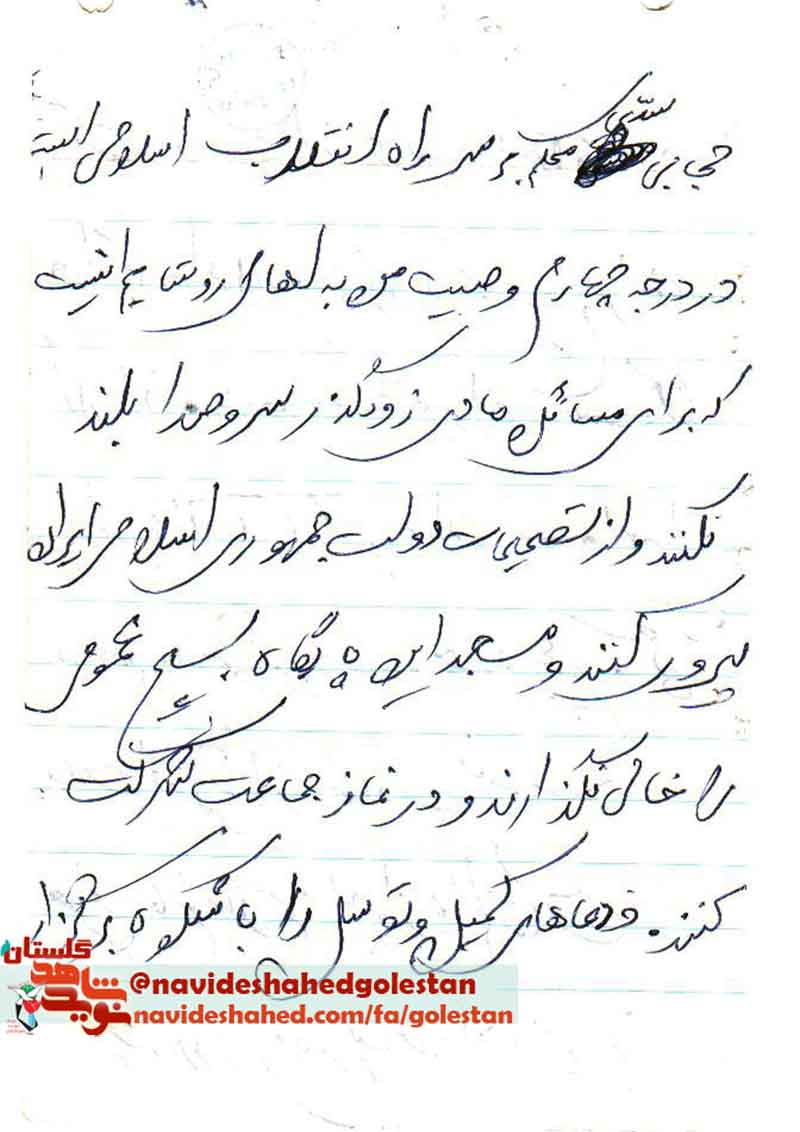 حجابی سدی محکم بر سر راه انقلاب اسلامی است
در درجه چهارم وصیت من به اهالی روستایم اینست
که برای مسائل مادی زودگذر سر و صدا بلند
نکنند و از تصمیمات دولت جمهوری اسلامی ایران
پیروی کنند و مسجد این پایگاه بسیج عمومی
را خالی نگذارند و در نماز جماعت شرکت
کنند. و دعاهای کمیل و توسل را با شکوه برگزار
گلستان
نوید شاهد
@navideshahedgolestan
navideshahed.com/fa/golestan